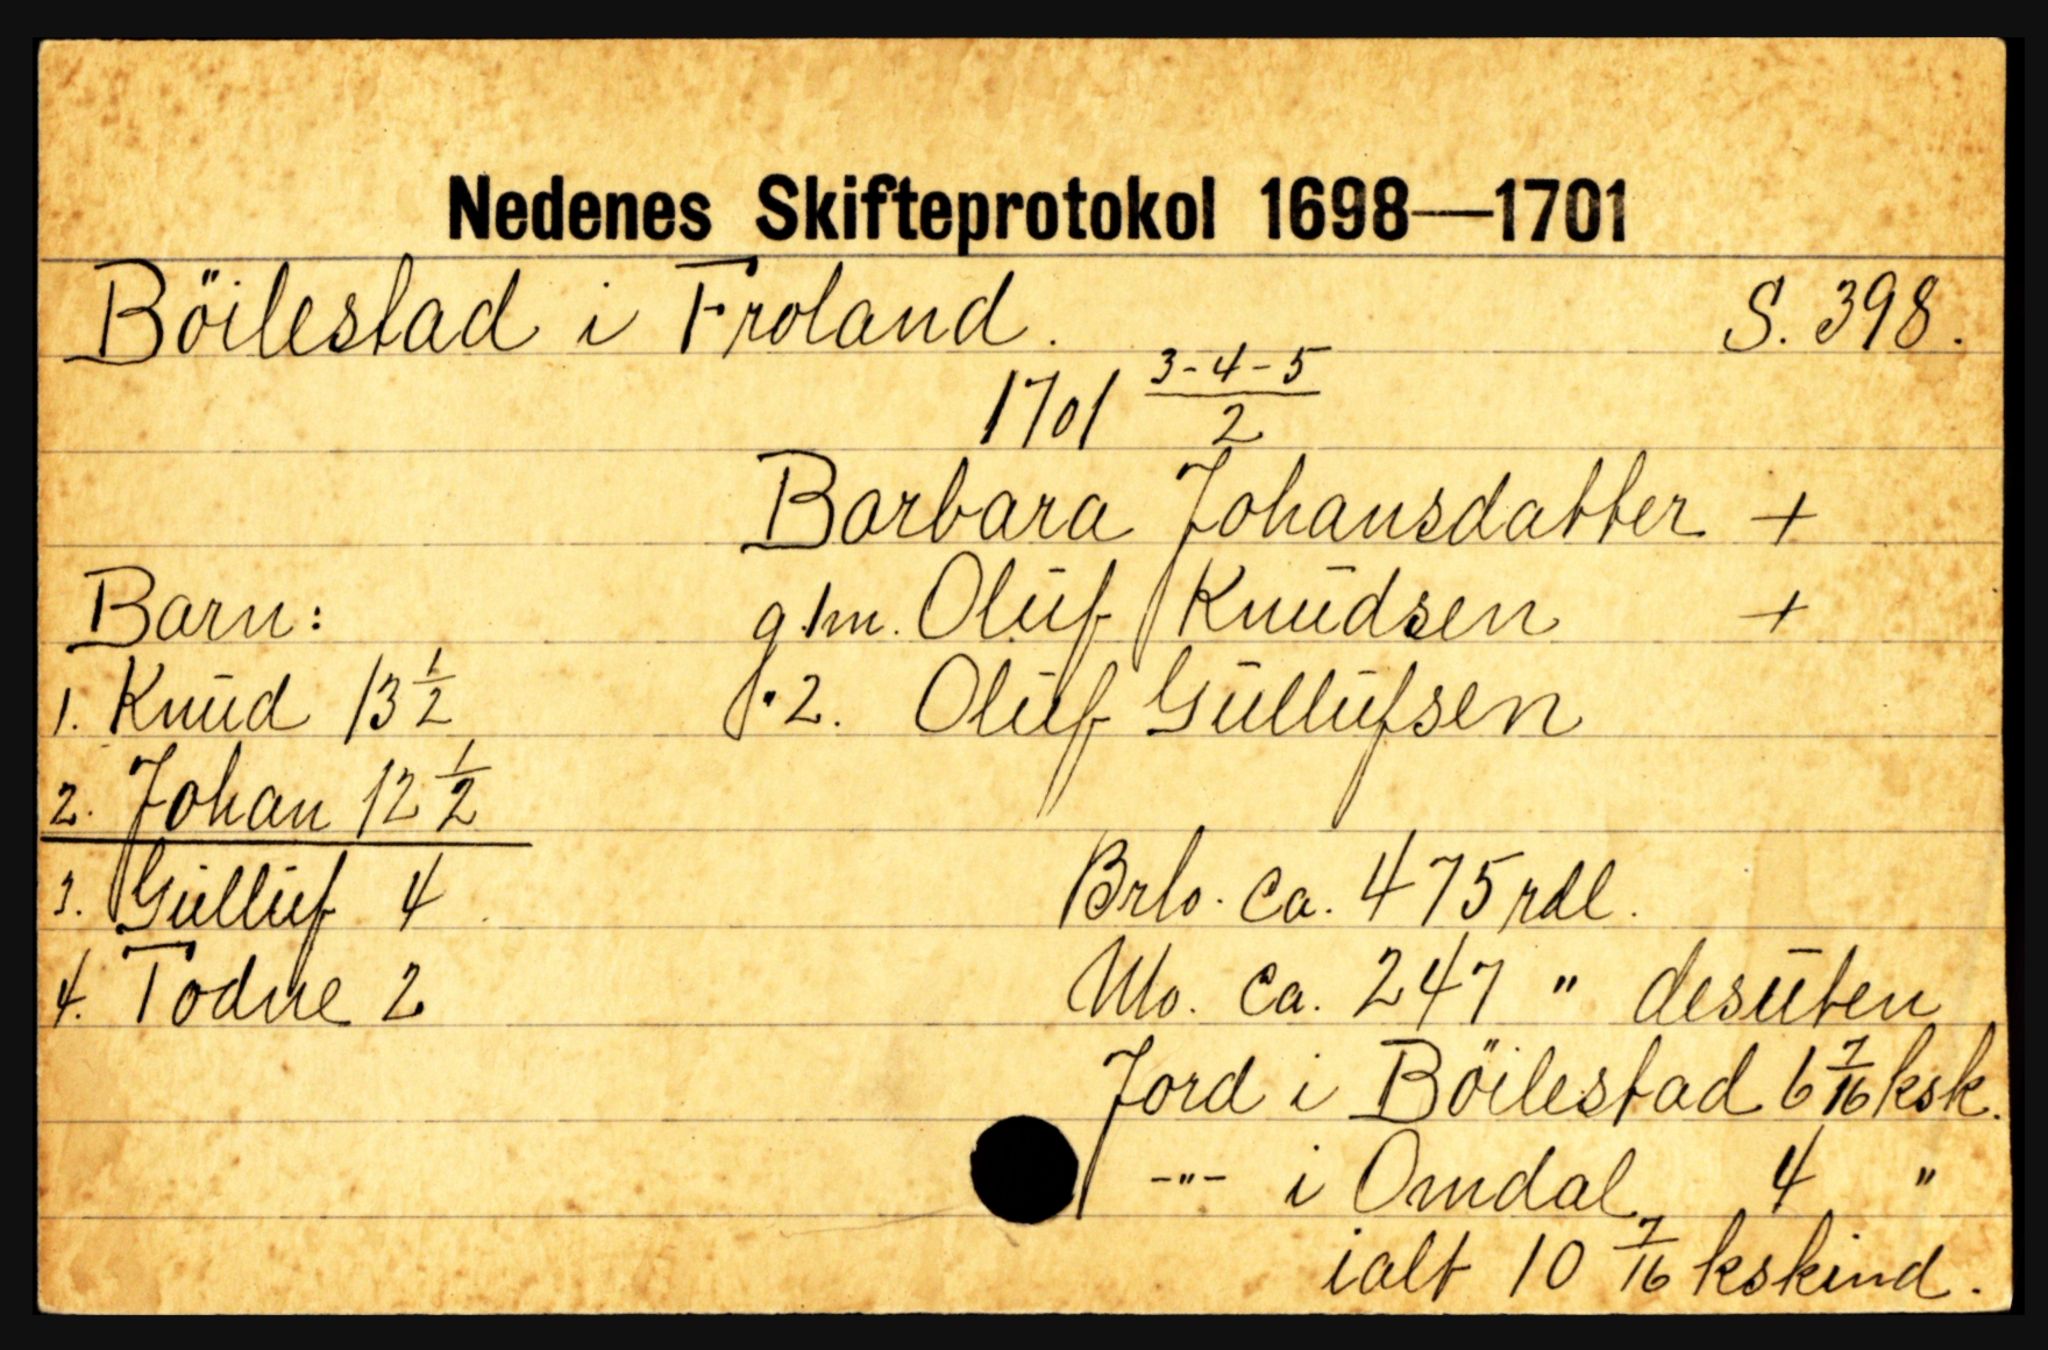 Nedenes Skifteprotokol 1698—1701
Böilestad i Froland. S. 398.
1701 3-4-5/2
Barbara Johansdatter +
Barn: g. 1 m. Oluf Knudsen +
1. Knud 13 1/2 " 2. Oluf Gullufsen
2. Johan 12 1/2
3. Gulluf 4 Brlo. Ca. 475 rdl.
4. Todne 2 Nlo. Ca. 247 " desuten
Jord i Böilestad 6 7/16 ksk.
-"- i Omdal 4 "
ialt 10 7/16 kskind.